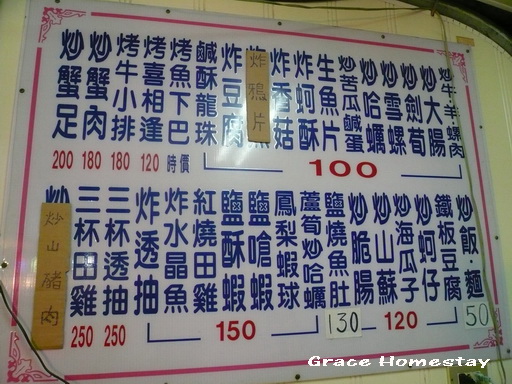 炒蟹足
200
炒蟹肉
180
烤牛小排
180
烤喜相逢
120
烤魚下巴
時價
鹹酥龍珠
炸豆腐
炸鴉片
炸香菇
炸蚵酥
生魚片
炒苦瓜鹹蛋
炒哈蠣
炒雪螺
炒劍筍
炒大腸
炒牛羊螺肉
100
炒
炒山豬肉
三杯田雞
250
三杯透抽
250
炸透抽
炸水晶魚
紅燒田雞
鹽酥蝦
鹽嗆蝦
鳳梨蝦球
蘆筍炒哈蠣
150
鹽燒魚肚
130
炒脆腸
炒山蘇
炒海瓜子
炒蚵仔
鐵板豆腐
120
炒飯·麵
50
Grace Homestay